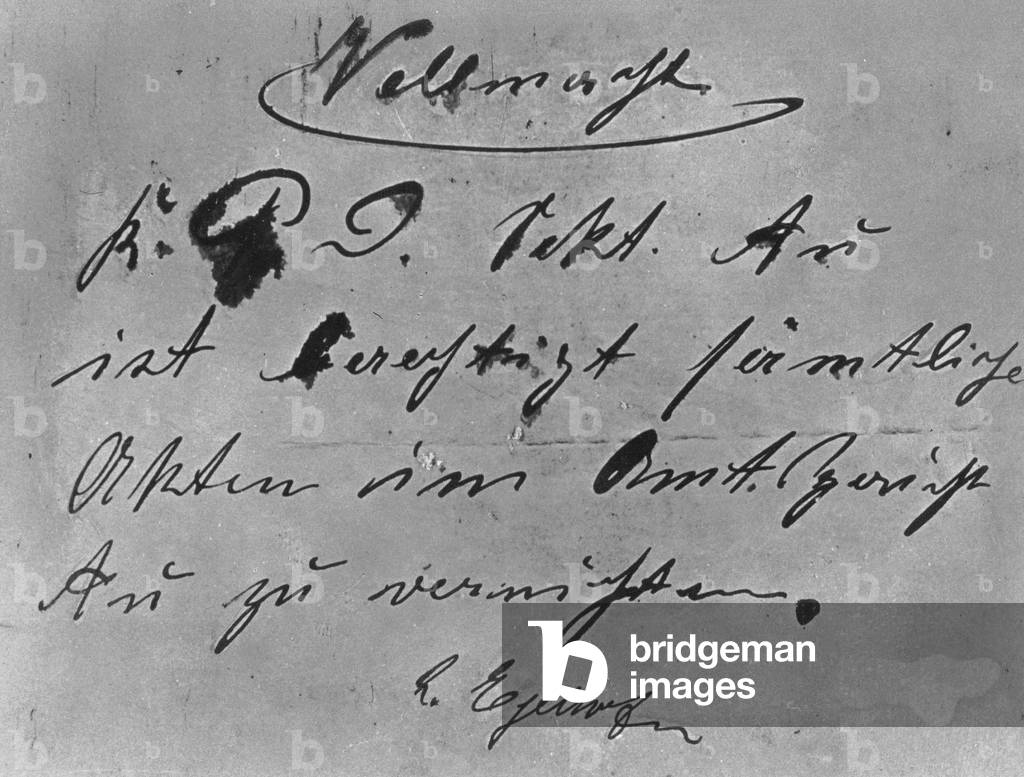 Vollmacht
K. P. D. Sekt. Au
ist berechtigt sämtliche
Akten im Amt. Gericht
Au zu vernichten.
bridgeman
images